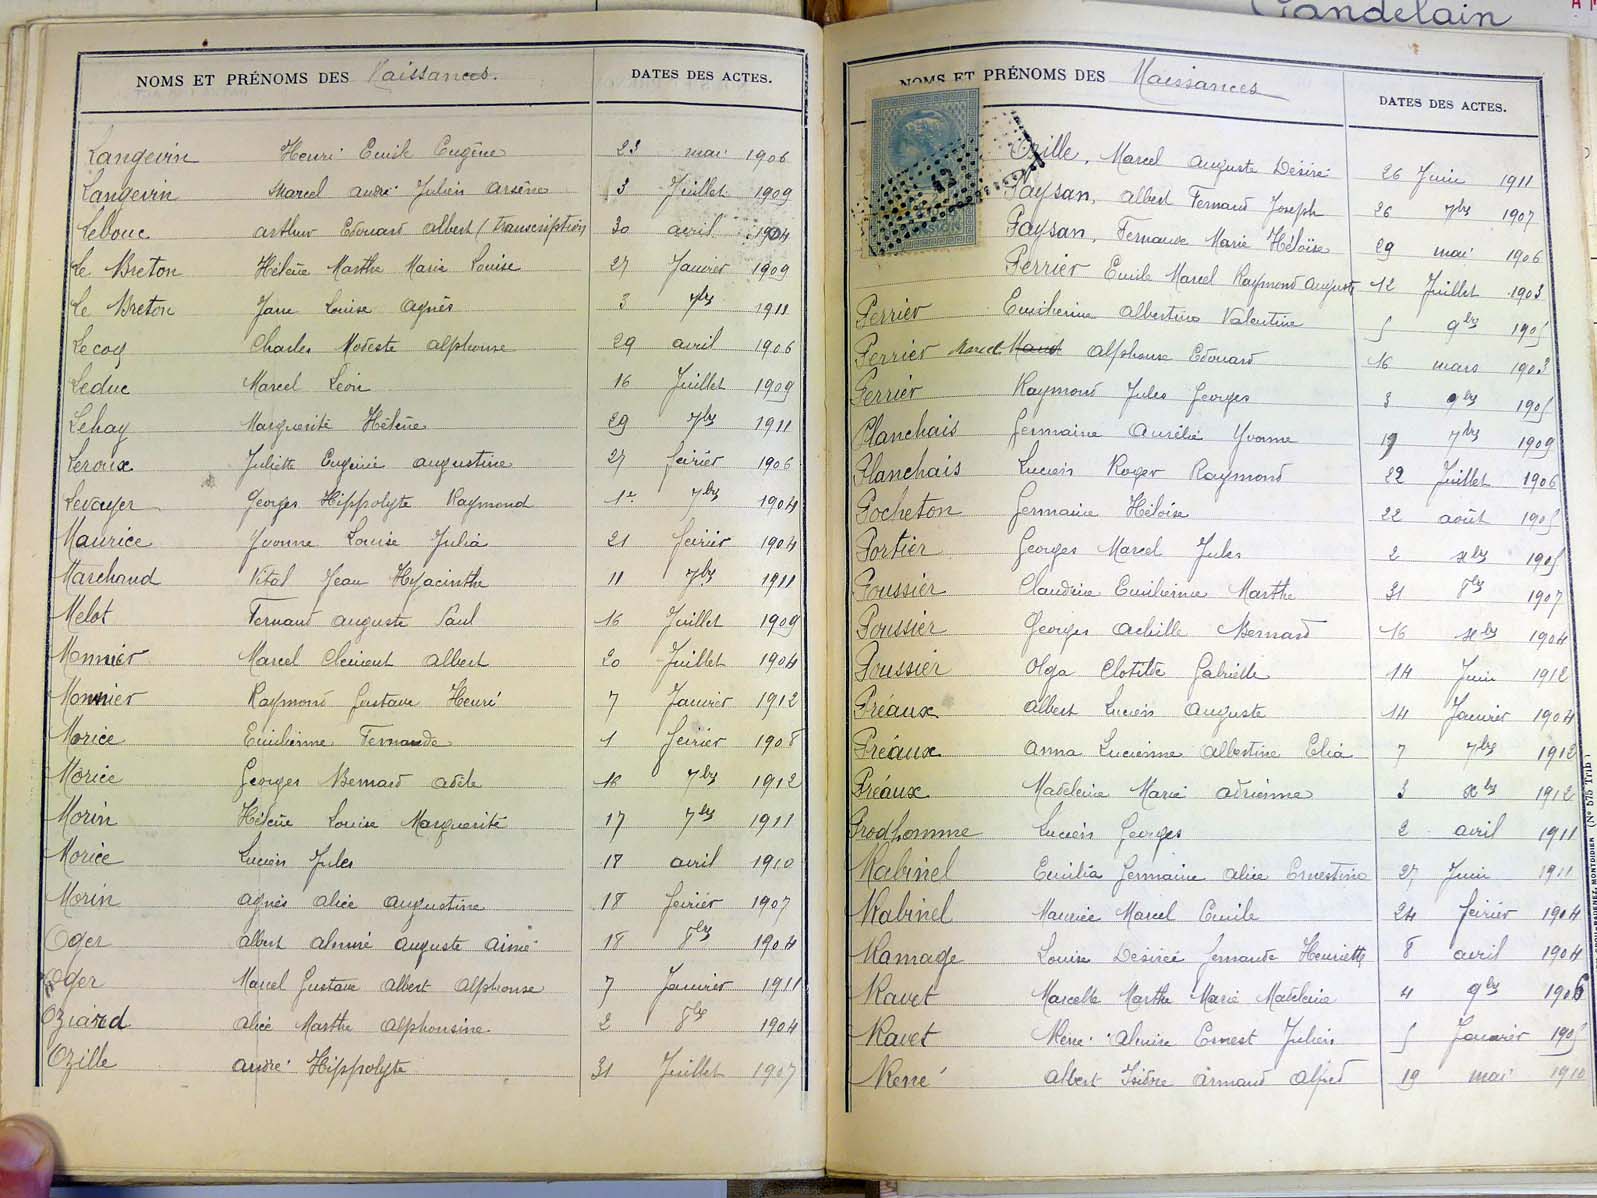 Gandelain
NOMS ET PRÉNOMS DES Naissances. DATES DES ACTES.
Langevin Henri Emile Eugène 23 mai 1906
Langevin Marcel André Julien Arsène 3 Juillet 1909
Lebouc Arthur Edouard Albert (transcription) 30 avril 1904
Le Breton Hélène Marthe Marie Louise 27 Janvier 1909
Le Breton Jane Louise Agnès 3 7bre 1911
Lecoq Charles Modeste Alphonse 29 avril 1906
Leduc Marcel Léon 16 Juillet 1909
Lehay Marguerite Hélène 29 7bre 1911
Leroux Juliette Eugénie Augustine 27 février 1906
Levayer Georges Hippolyte Raymond 1er 7bre 1904
Maurice Yvonne Louise Julia 21 février 1904
Marchand Vital Jean Hyacinthe 11 7bre 1911
Melot Fernand Auguste Paul 16 Juillet 1909
Monnier Marcel Clément Albert 20 Juillet 1904
Monnier Raymond Gustave Henri 7 Janvier 1912
Morice Emilienne Fernande 1 février 1908
Morice Georges Bernard Adèle 16 7bre 1912
Morin Hélène Louise Marguerite 17 7bre 1911
Morice Lucien Jules 18 avril 1910
Morin Agnès Alice Augustine 18 février 1907
Oger Albert Auguste Aimé 18 8bre 1904
Oger Marcel Gustave Albert Alphonse 7 Janvier 1911
Oziard Alice Marthe Alphonsine 2 8bre 1904
Ozille André Hippolyte 31 Juillet 1907
NOMS ET PRÉNOMS DES Naissances DATES DES ACTES.
Ozille, Marcel Auguste Désiré 26 Juin 1911
Paysan, Albert Fernand Joseph 26 7bre 1907
Paysan, Fernande Marie Héloïse 29 mai 1906
Perrier Emile Marcel Raymond Auguste 12 Juillet 1903
Perrier Emilienne Albertine Valentine 5 9bre 1905
Perrier Marcel Alphonse Edouard 16 mars 1903
Perrier Raymond Jules Georges 3 9bre 1905
Planchais Germaine Aurélie Yvonne 19 7bre 1909
Planchais Lucien Roger Raymond 22 Juillet 1906
Pocheton Germaine Héloïse 22 août 1905
Portier Georges Marcel Jules 2 xbre 1905
Poussier Claudine Emilienne Marthe 31 8bre 1907
Poussier Georges Achille Bernard 16 xbre 1904
Poussier Olga Clotilde Gabrielle 14 Juin 1912
Préaux Albert Lucien Auguste 14 Janvier 1904
Préaux Anna Lucienne Albertine Elia 7 7bre 1912
Préaux Madeleine Marie Adrienne 3 xbre 1912
Prodhomme Lucien Georges 2 avril 1911
Rabinel Emilia Germaine Alice Ernestine 27 Juin 1911
Rabinel Maurice Marcel Emile 24 février 1904
Ramage Louise Désirée Fernande Henriette 8 avril 1904
Ravet Marcelle Marthe Marie Madeleine 4 9bre 1906
Ravet René Ernest Julien 5 Janvier 1905
René Albert Isidore Armand Alfred 19 mai 1910
MONTDIDIER (No 575 Trib)